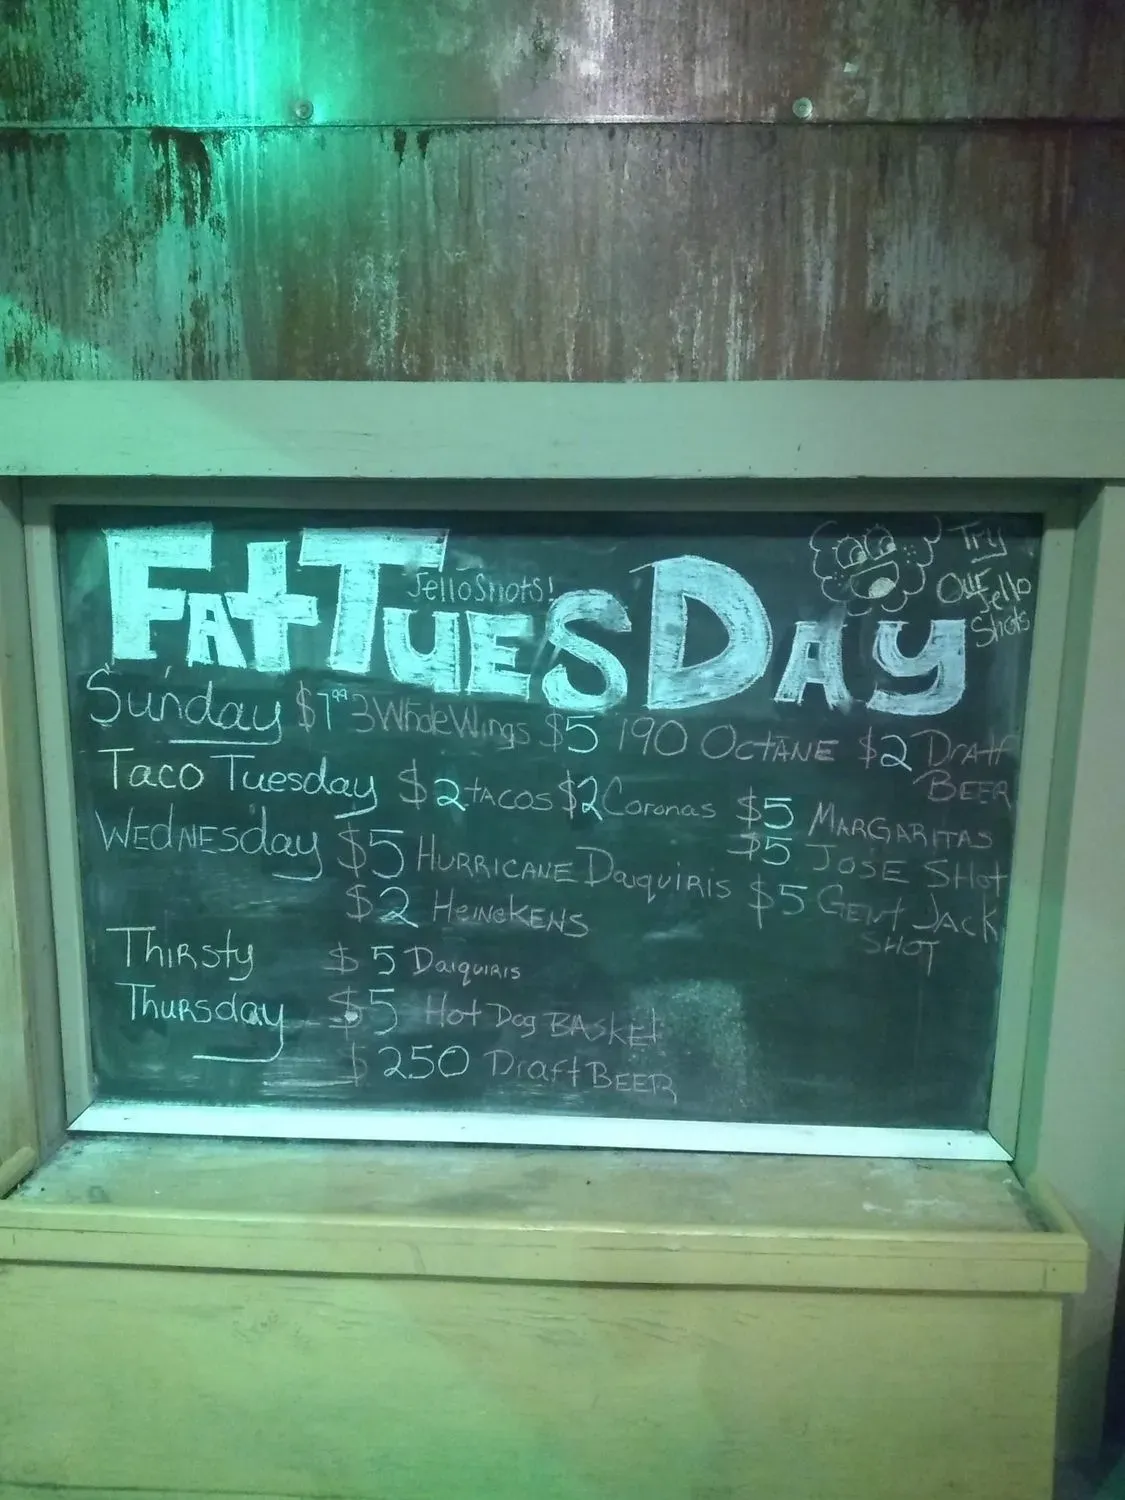 FAt TUESDAY
Jello Shots!
Try
Our Jello
Shots
Sunday $1.99 3 Whole Wings $5 190 OCTANE $2 Draft
BEER
Taco Tuesday $2 tacos $2 Coronas $5 MARGARITAS
$5 JOSE SHot
WEDNESday $5 HURRICANE DaiquiRIS $5 Gent JACK
SHOT
$2 HeineKENS
Thirsty $5 DaiquIRIS
Thursday $5 Hot Dog BASket
$250 Draft BEER